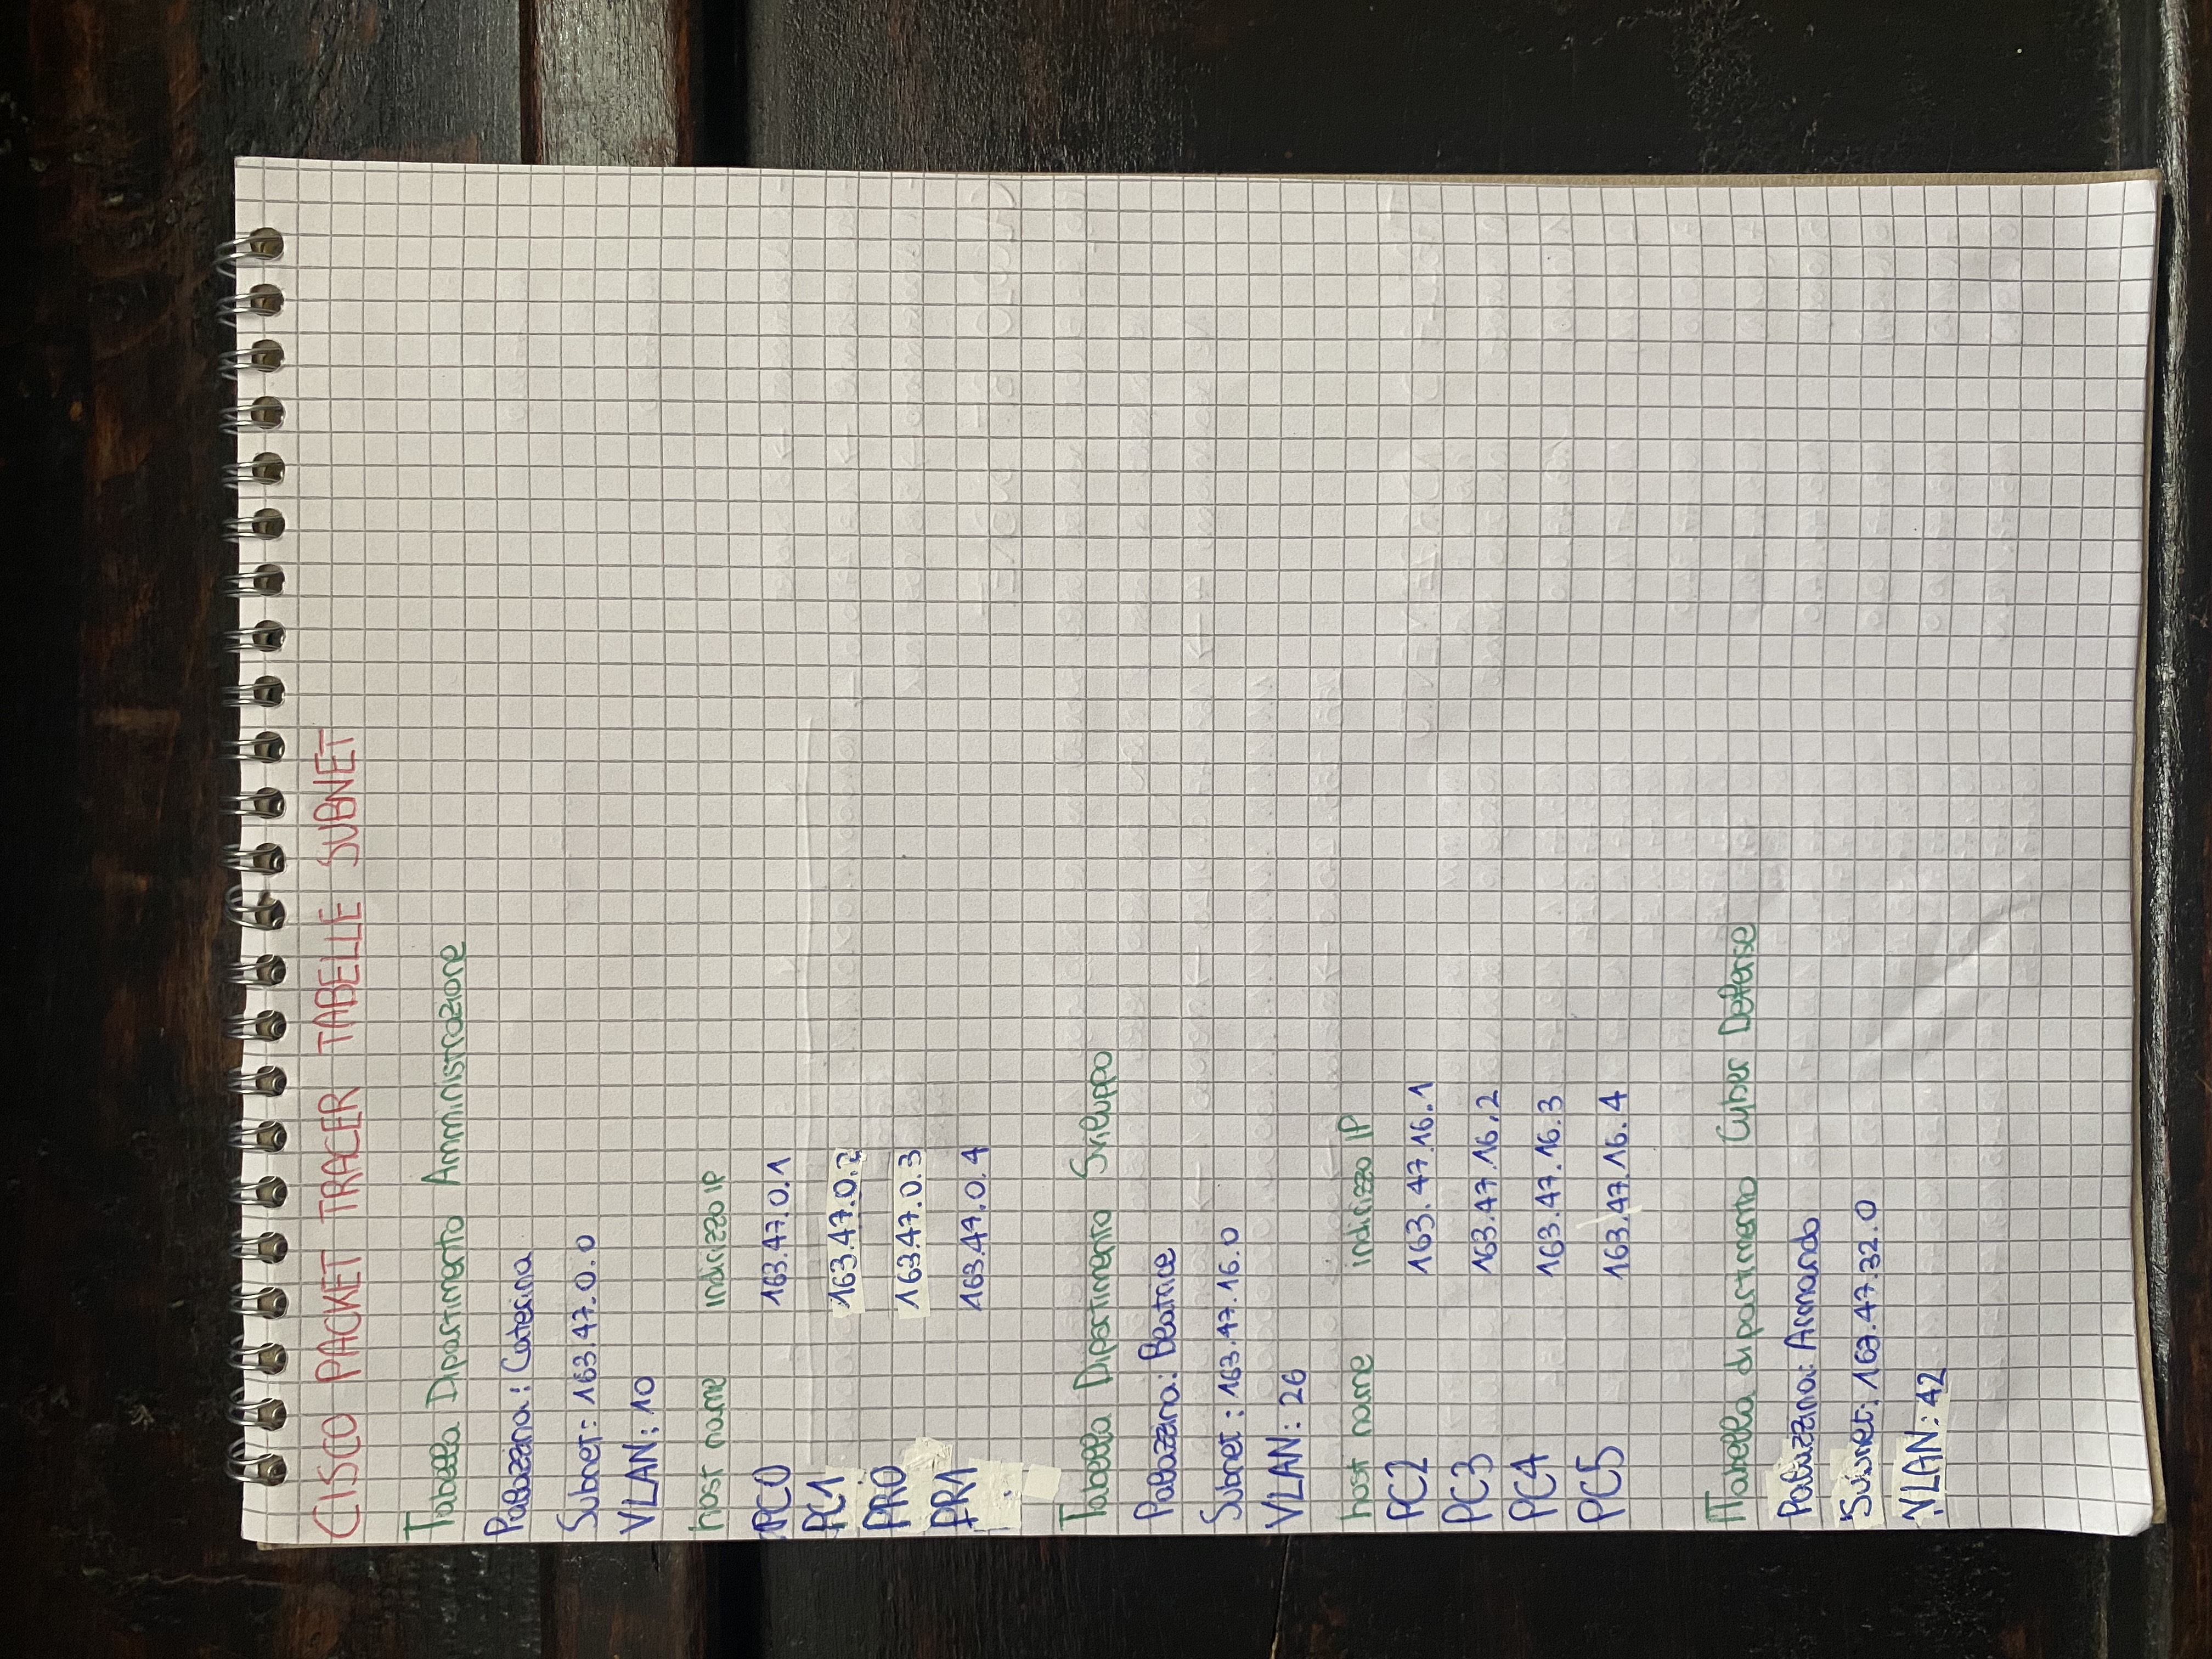 CISCO PACKET TRACER TABELLE SUBNET
Tabella Dipartimento Amministrazione
Palazzina: Caterina
Subnet: 163.47.0.0
VLAN: 10
host name indirizzo IP
PC0 163.47.0.1
PC1 163.47.0.2
PR0 163.47.0.3
PR1 163.47.0.4
Tabella Dipartimento Sviluppo
Palazzina: Beatrice
Subnet: 163.47.16.0
VLAN: 26
host name indirizzo IP
PC2 163.47.16.1
PC3 163.47.16.2
PC4 163.47.16.3
PC5 163.47.16.4
Tabella dipartimento Cyber Defense
Palazzina: Armando
Subnet: 163.47.32.0
VLAN: 42